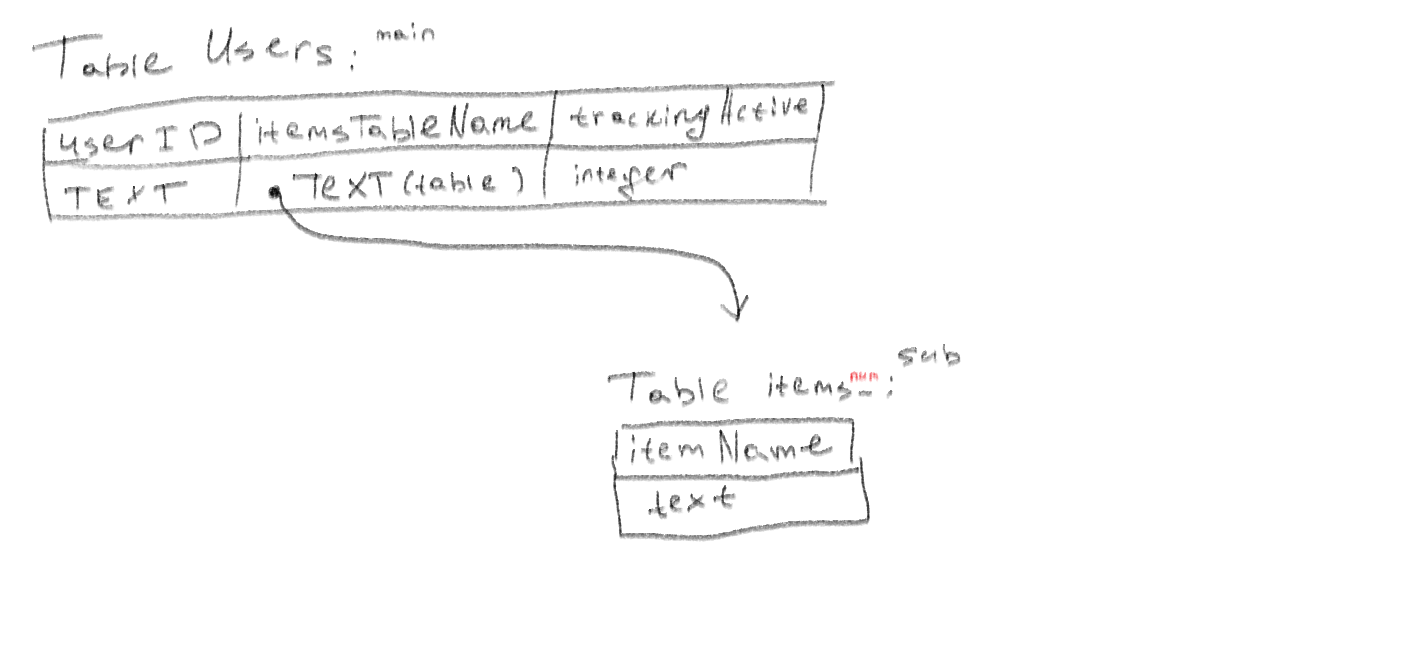 Table Users: main
userID itemsTableName trackingActive
TEXT TEXT (table) integer
Table items_num: sub
itemName
text